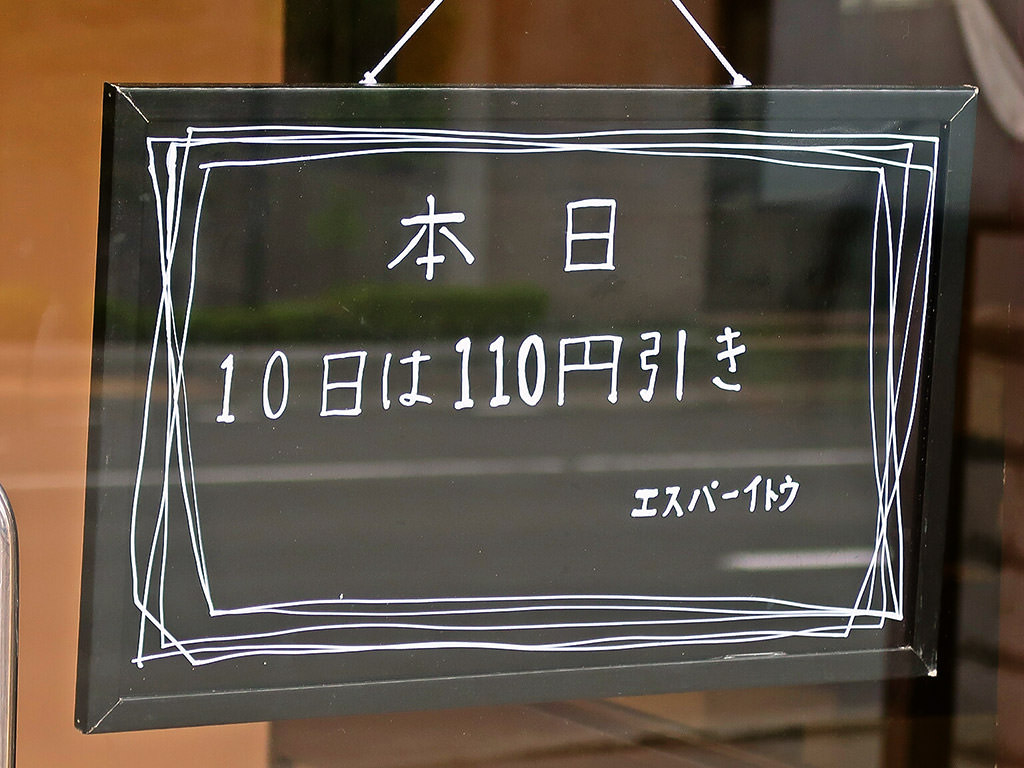 本日
10日は110円引き
エスパーイトウ